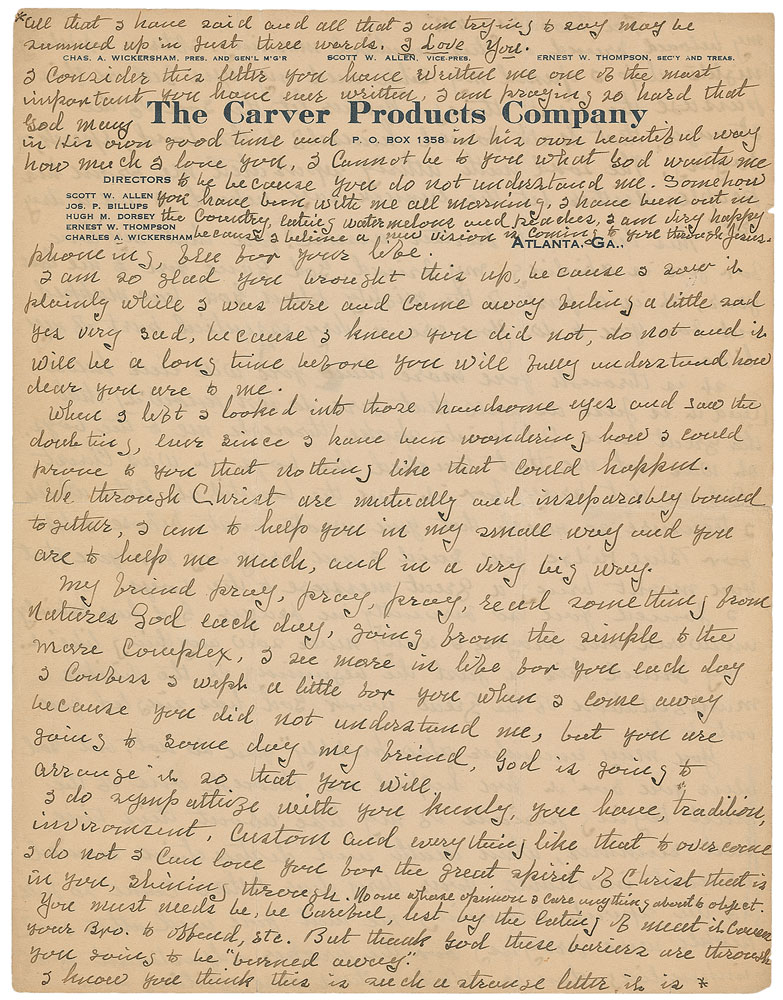 *all that I have said and all that I am trying to say may be
summed up in just three words. I Love You.
CHAS. A. WICKERSHAM, PRES. AND GEN'L M'G'R SCOTT W. ALLEN, VICE-PRES. ERNEST W. THOMPSON, SEC'Y AND TREAS.
I Consider this letter you have written me one of the most
important you have ever written, I am praying so hard that
The Carver Products Company
God may
in His own good time and P. O. BOX 1358 in his own beautiful way
how much I love you, I Cannot be to you what God wants me
DIRECTORS to be because you do not understand me. Somehow
SCOTT W. ALLEN you have been with me all morning, I have been out in
JOS. P. BILLUPS
HUGH M. DORSEY the Country, eating watermelons and peaches, I am very happy
ERNEST W. THOMPSON
CHARLES A. WICKERSHAM because I believe a new vision is coming to you through Jesus.
ATLANTA, GA.,
phoneing, flee for your life.
I am so glad you brought this up, because I saw it
plainly while I was there and came away feeling a little sad
yes very sad, because I knew you did not, do not and it
will be a long time before you will fully understand how
dear you are to me.
When I left I looked into those handsome eyes and saw the
doubting, ever since I have been wondering how I could
prove to you that nothing like that could happen.
We through Christ are mutually and inseparably bound
together, I am to help you in my small way and you
are to help me much, and in a very big way.
My friend pray, pray, pray, read something from
Natures God each day, going from the simple to the
more Complex, I see more in life for you each day
I Confess I weph a little for you when I come away
because you did not understand me, but you are
going to some day my friend, God is going to
arrange it so that you will.
I do sympathize with you keenly, you have, tradition,
inviroment, Custom and everything like that to overcome
I do not I Can love you for the great spirit of Christ that is
in you, shining through. No one whose opinion I care anything about to object.
You must needs be, be Careful, lest by the eating of meat it Cause
your Bro. to offend, etc. But thank God these bariers are through
you going to be "burned away".
I know you think this is such a strange letter, it is *